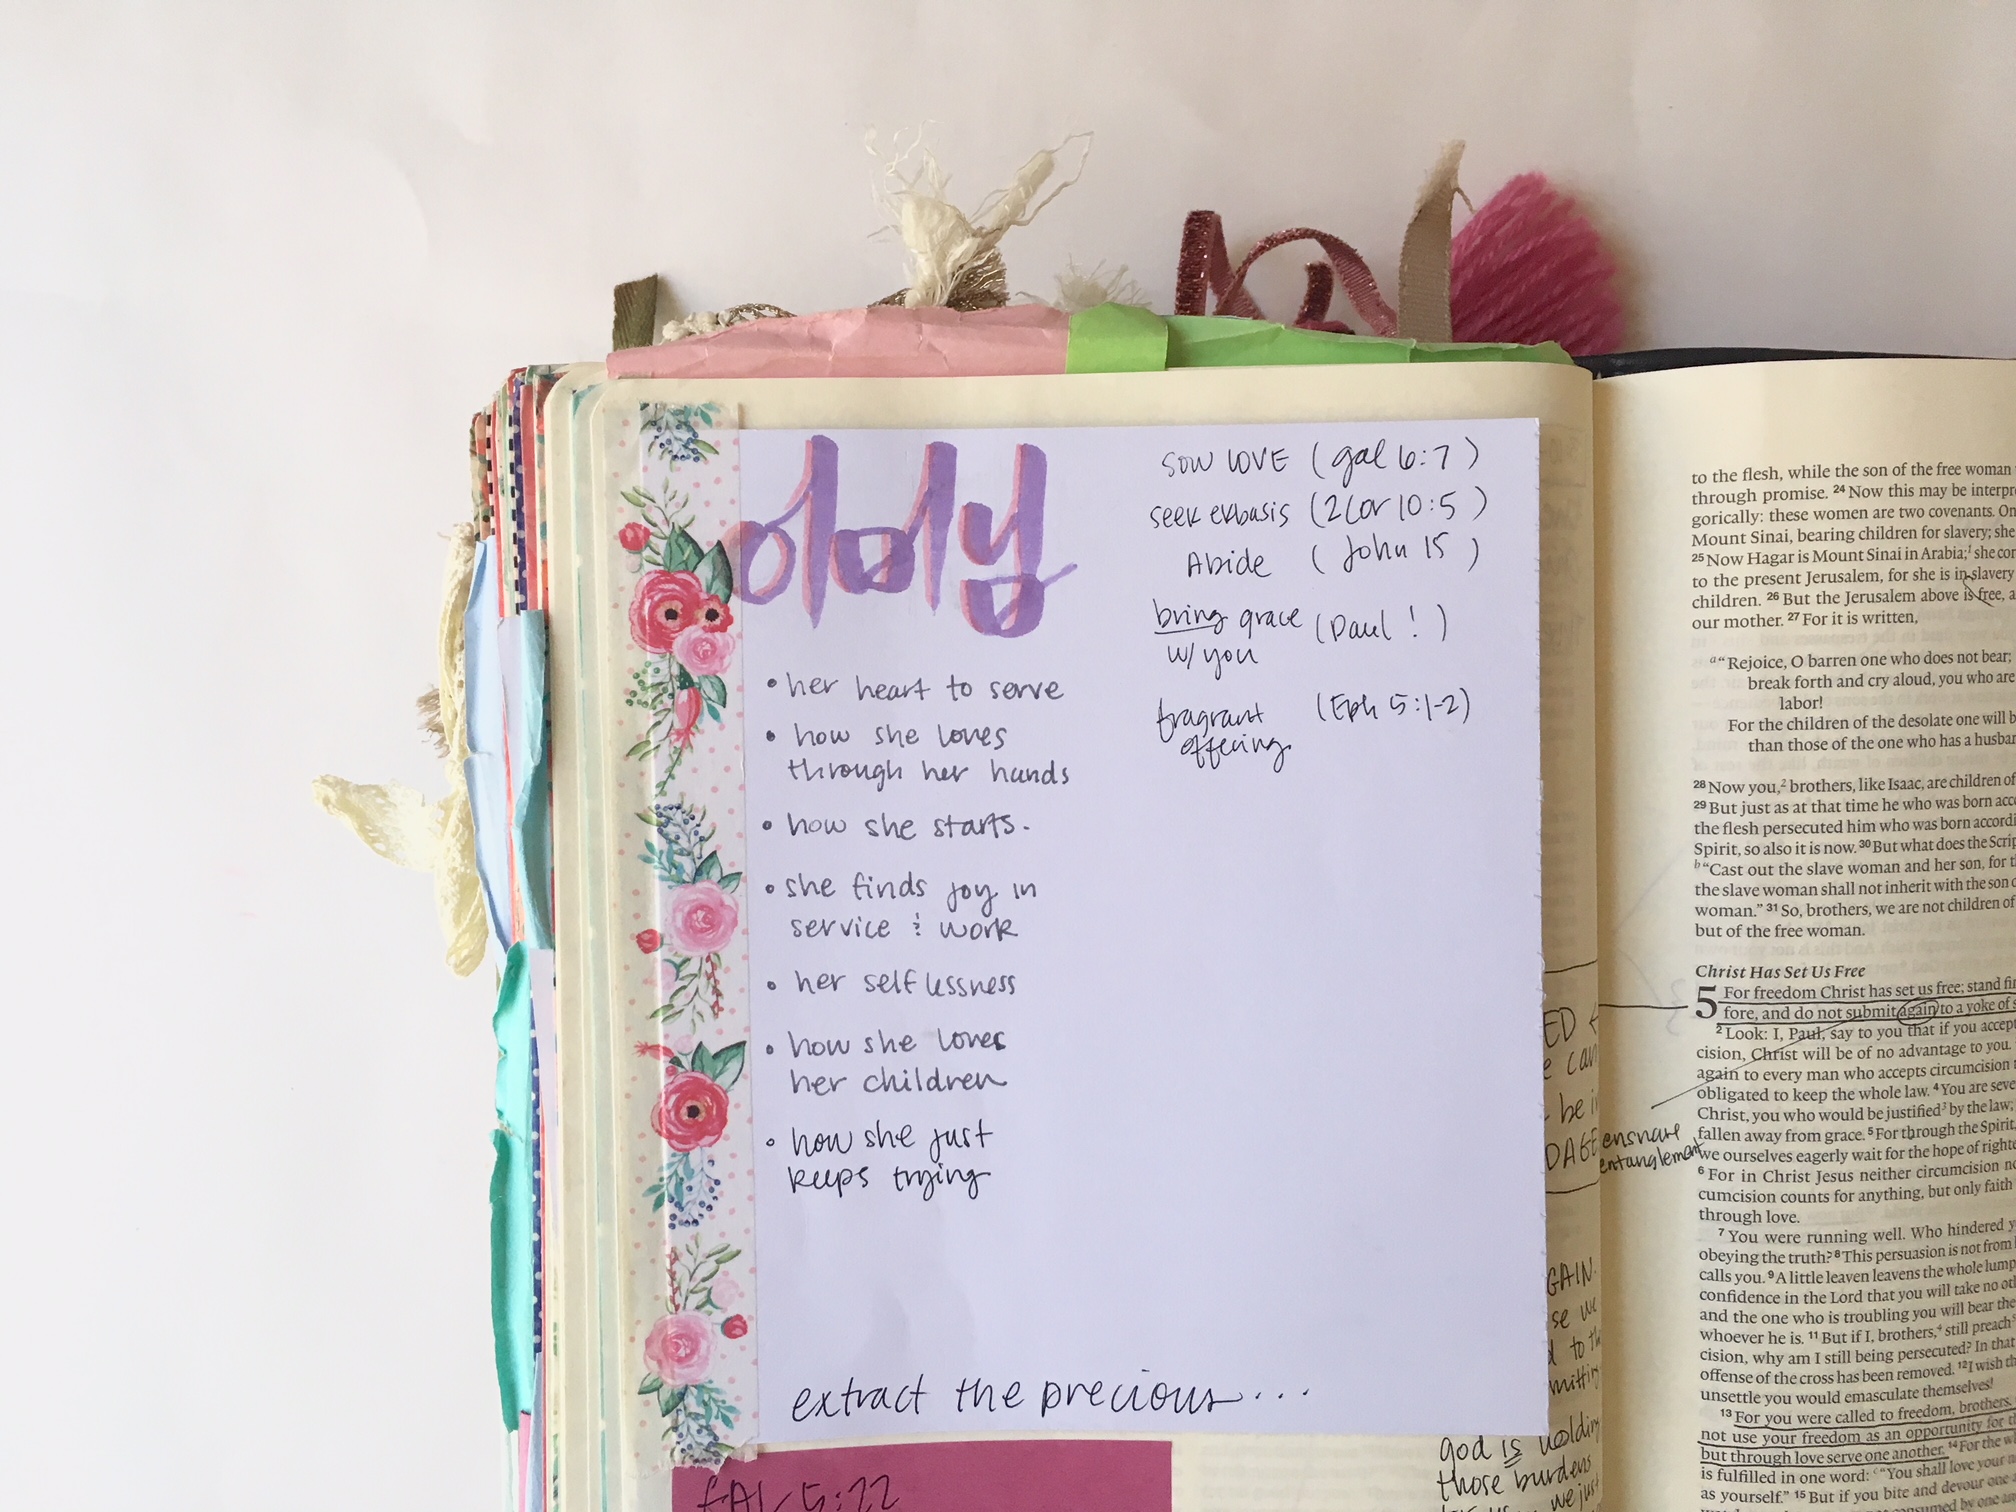 her heart to serve
how she loves
through her hands
how she starts.
she finds joy in
service & work
her selflessness
how she loves
her children
how she just
keeps trying
sow LOVE (gal 6:7)
seek ekbasis (2 Cor 10:5)
Abide (John 15)
bring grace (Paul!)
w/ you
fragrant (Eph 5:1-2)
offering
extract the precious...
GAL 5:22
ED
e can
be i
DAGE
GAIN.
se we
d to th
mitting
god is holding
those burdens
we just
ensnare
entanglement
to the flesh, while the son of the free woman
through promise. 24 Now this may be interpr
gorically: these women are two covenants. On
Mount Sinai, bearing children for slavery; she
25 Now Hagar is Mount Sinai in Arabia; she cor
to the present Jerusalem, for she is in slavery
children. 26 But the Jerusalem above is free, a
our mother. 27 For it is written,
a "Rejoice, O barren one who does not bear;
break forth and cry aloud, you who are
labor!
For the children of the desolate one will b
than those of the one who has a husba
28 Now you,2 brothers, like Isaac, are children of
29 But just as at that time he who was born acc
the flesh persecuted him who was born accordi
Spirit, so also it is now. 30 But what does the Scrip
b "Cast out the slave woman and her son, for t
the slave woman shall not inherit with the son o
woman." 31 So, brothers, we are not children of
but of the free woman.
Christ Has Set Us Free
5 For freedom Christ has set us free; stand fir
fore, and do not submit again to a yoke of s
2 Look: I, Paul, say to you that if you accept
cision, Christ will be of no advantage to you.
again to every man who accepts circumcision
obligated to keep the whole law. 4 You are seve
Christ, you who would be justified3 by the law;
fallen away from grace. 5 For through the Spirit,
we ourselves eagerly wait for the hope of righte
6 For in Christ Jesus neither circumcision no
cumcision counts for anything, but only faith
through love.
7 You were running well. Who hindered y
obeying the truth? 8 This persuasion is not from
calls you. 9 A little leaven leavens the whole lump
confidence in the Lord that you will take no oth
and the one who is troubling you will bear the
whoever he is. 11 But if I, brothers,4 still preach
cision, why am I still being persecuted? In that
offense of the cross has been removed. 12 I wish th
unsettle you would emasculate themselves!
13 For you were called to freedom, brothers.
not use your freedom as an opportunity for th
but through love serve one another. 14 For the w
is fulfilled in one word: "You shall love your n
as yourself." 15 But if you bite and devour one